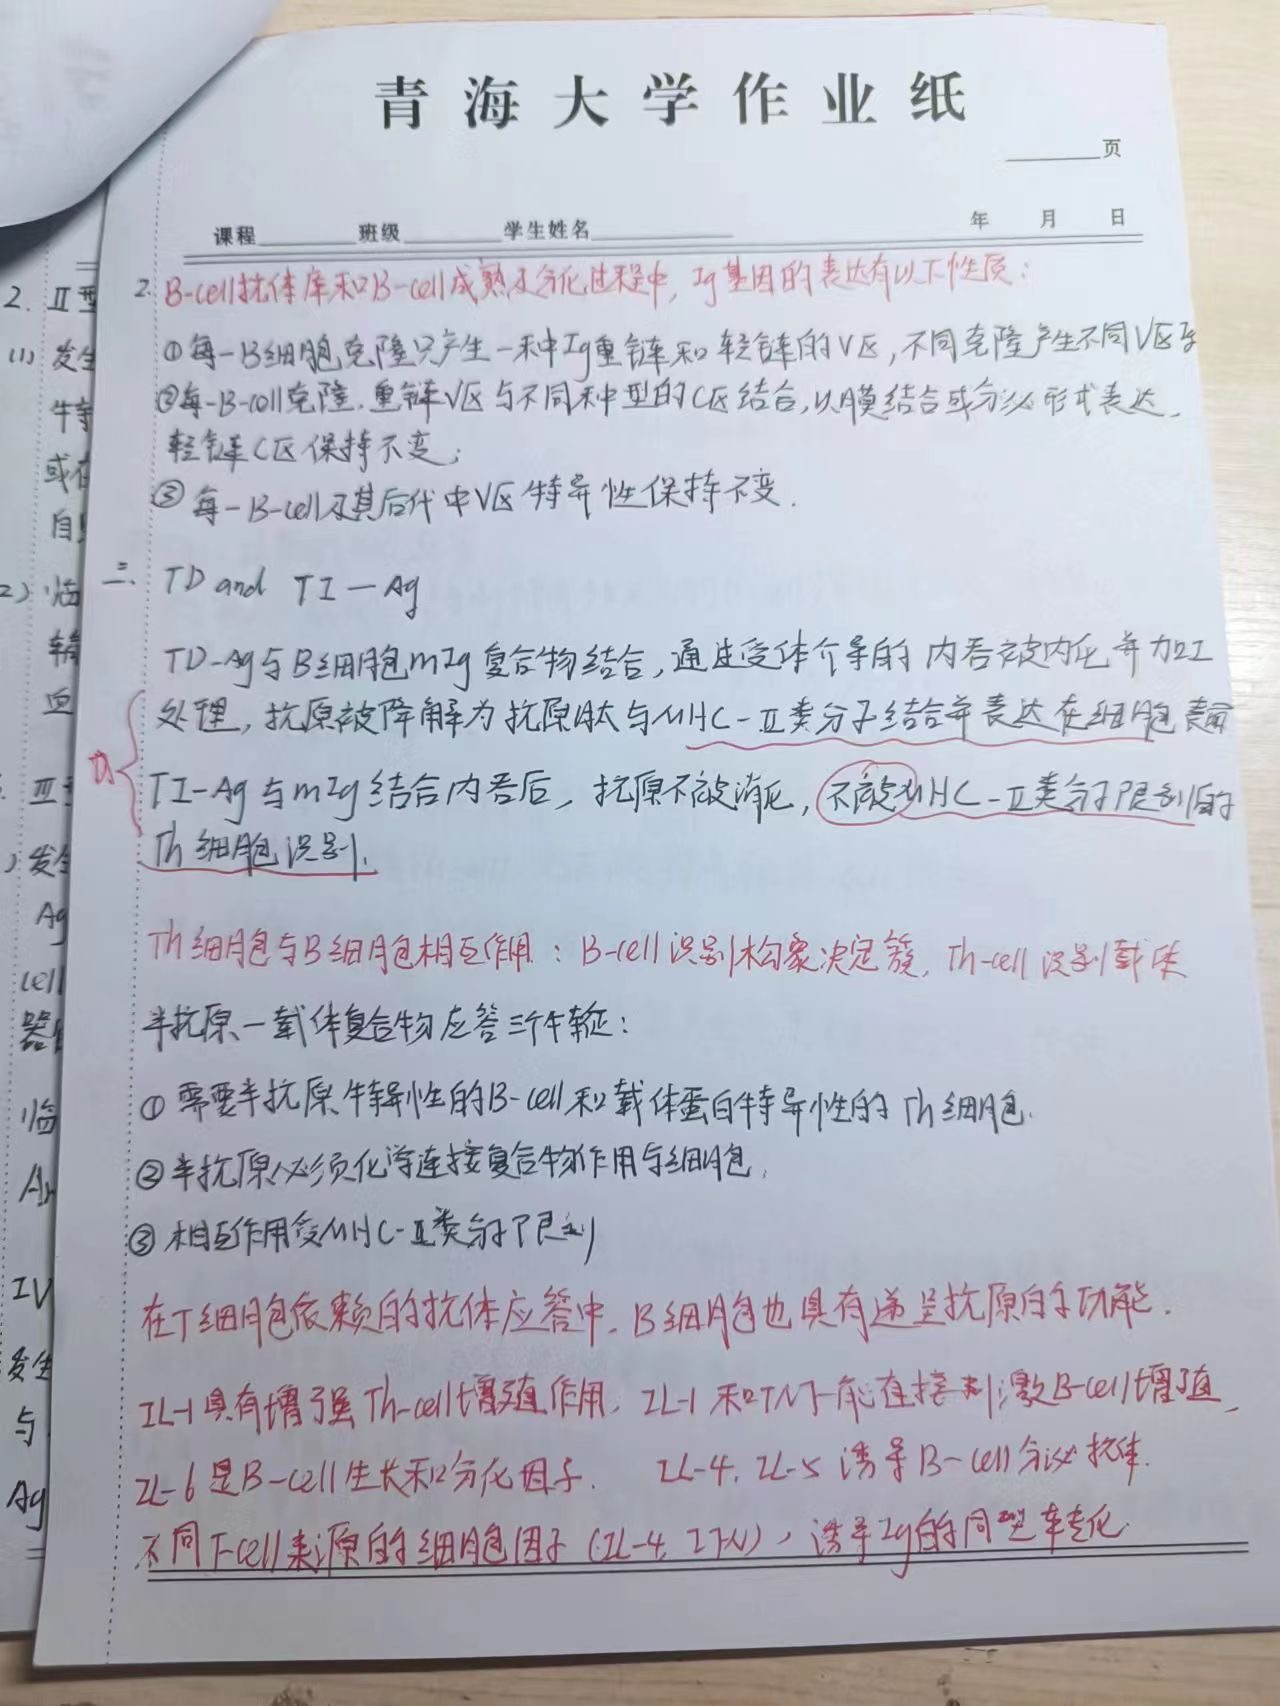 青海大学作业纸
页
课程 班级 学生姓名 年 月 日
2. B-cell抗体库和B-cell成熟及分化过程中, Ig基因的表达有以下性质:
①每一B细胞克隆只产生一种Ig重链和轻链的V区,不同克隆产生不同V区
②每一B-cell克隆.重链V区与不同种型的C区结合,以膜结合或分泌形式表达.
轻链C区保持不变;
③每一B-cell及其后代中V区特异性保持不变.
二. TD and TI-Ag
TD-Ag与B细胞mIg复合物结合,通过受体介导的内吞被内化并加工
处理,抗原被降解为抗原肽与MHC-Ⅱ类分子结合并表达在细胞表面
TI-Ag与mIg结合内吞后,抗原不被消化,不被MHC-Ⅱ类分子限制的
Th细胞识别.
Th细胞与B细胞相互作用: B-cell识别构象决定簇, Th-cell识别载体
半抗原一载体复合物应答三个特征:
①需要半抗原特异性的B-cell和载体蛋白特异性的Th细胞.
②半抗原必须化学连接复合物作用与细胞.
③相互作用受MHC-Ⅱ类分子限制
在T细胞依赖的抗体应答中.B细胞也具有递呈抗原的功能.
IL-1具有增强Th-cell增殖作用, IL-1和TNF能直接刺激B-cell增殖,
IL-6是B-cell生长和分化因子. IL-4, IL-5诱导B-cell分泌抗体.
不同T-cell来源的细胞因子(IL-4, IFN),诱导Ig的同型转化.
2. Ⅱ型
(1) 发生
或在
2) 临
血
) 发生
Ag
cell
临
IV
发生
与
Ag